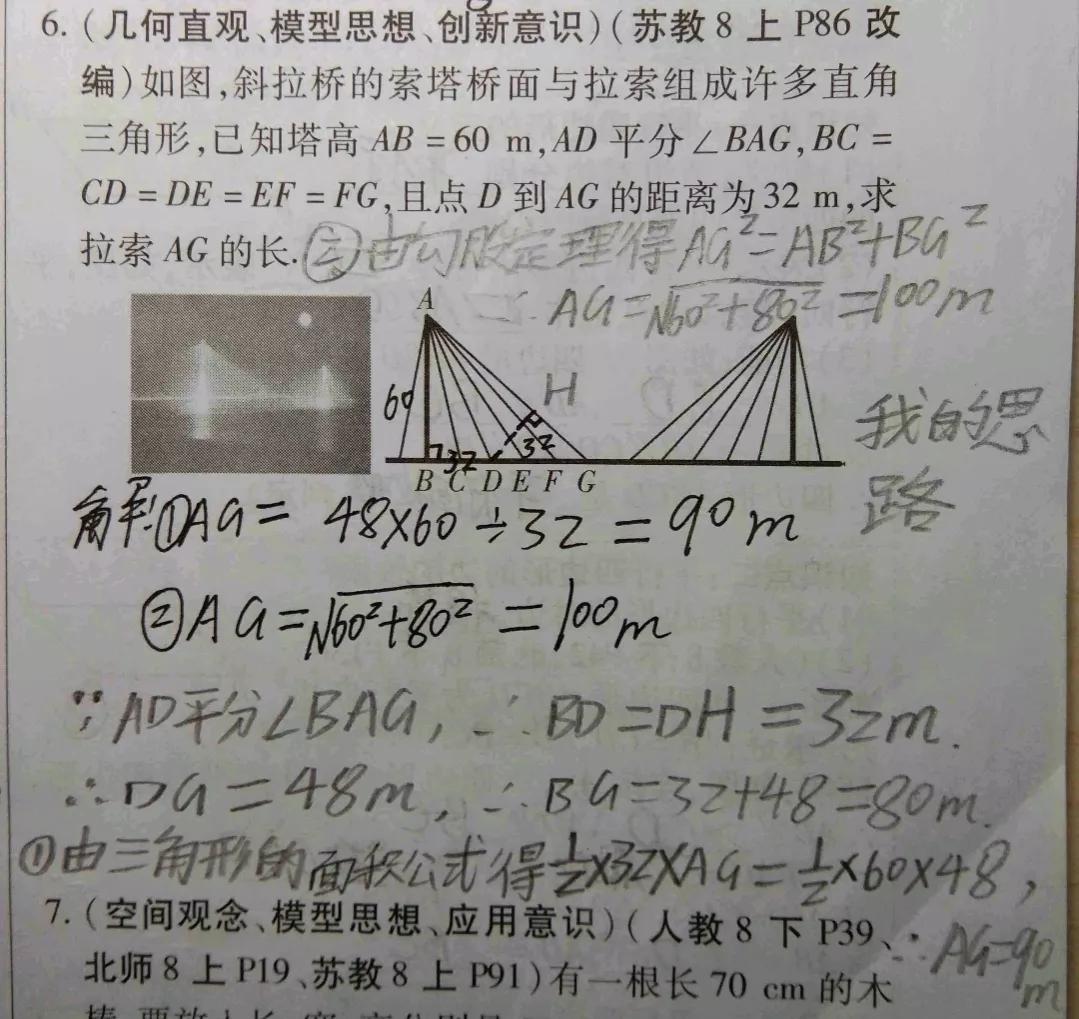 6. (几何直观、模型思想、创新意识)(苏教 8 上 P86 改
编)如图,斜拉桥的索塔桥面与拉索组成许多直角
三角形,已知塔高 AB = 60 m,AD 平分∠BAG,BC =
CD = DE = EF = FG,且点 D 到 AG 的距离为 32 m,求
拉索 AG 的长. ②由勾股定理得AG²=AB²+BG²
∴AG=√60²+80²=100m
A
H
60
32
32
B C D E F G
我的思
路
解:①AG= 48×60÷32=90m
②AG=√60²+80²=100m
∵AD平分∠BAG,∴BD=DH=32m.
∴DG=48m,∴BG=32+48=80m.
①由三角形的面积公式得½×32×AG=½×60×48,
∴AG=90m
7. (空间观念、模型思想、应用意识)(人教 8 下 P39、
北师 8 上 P19、苏教 8 上 P91)有一根长 70 cm 的木